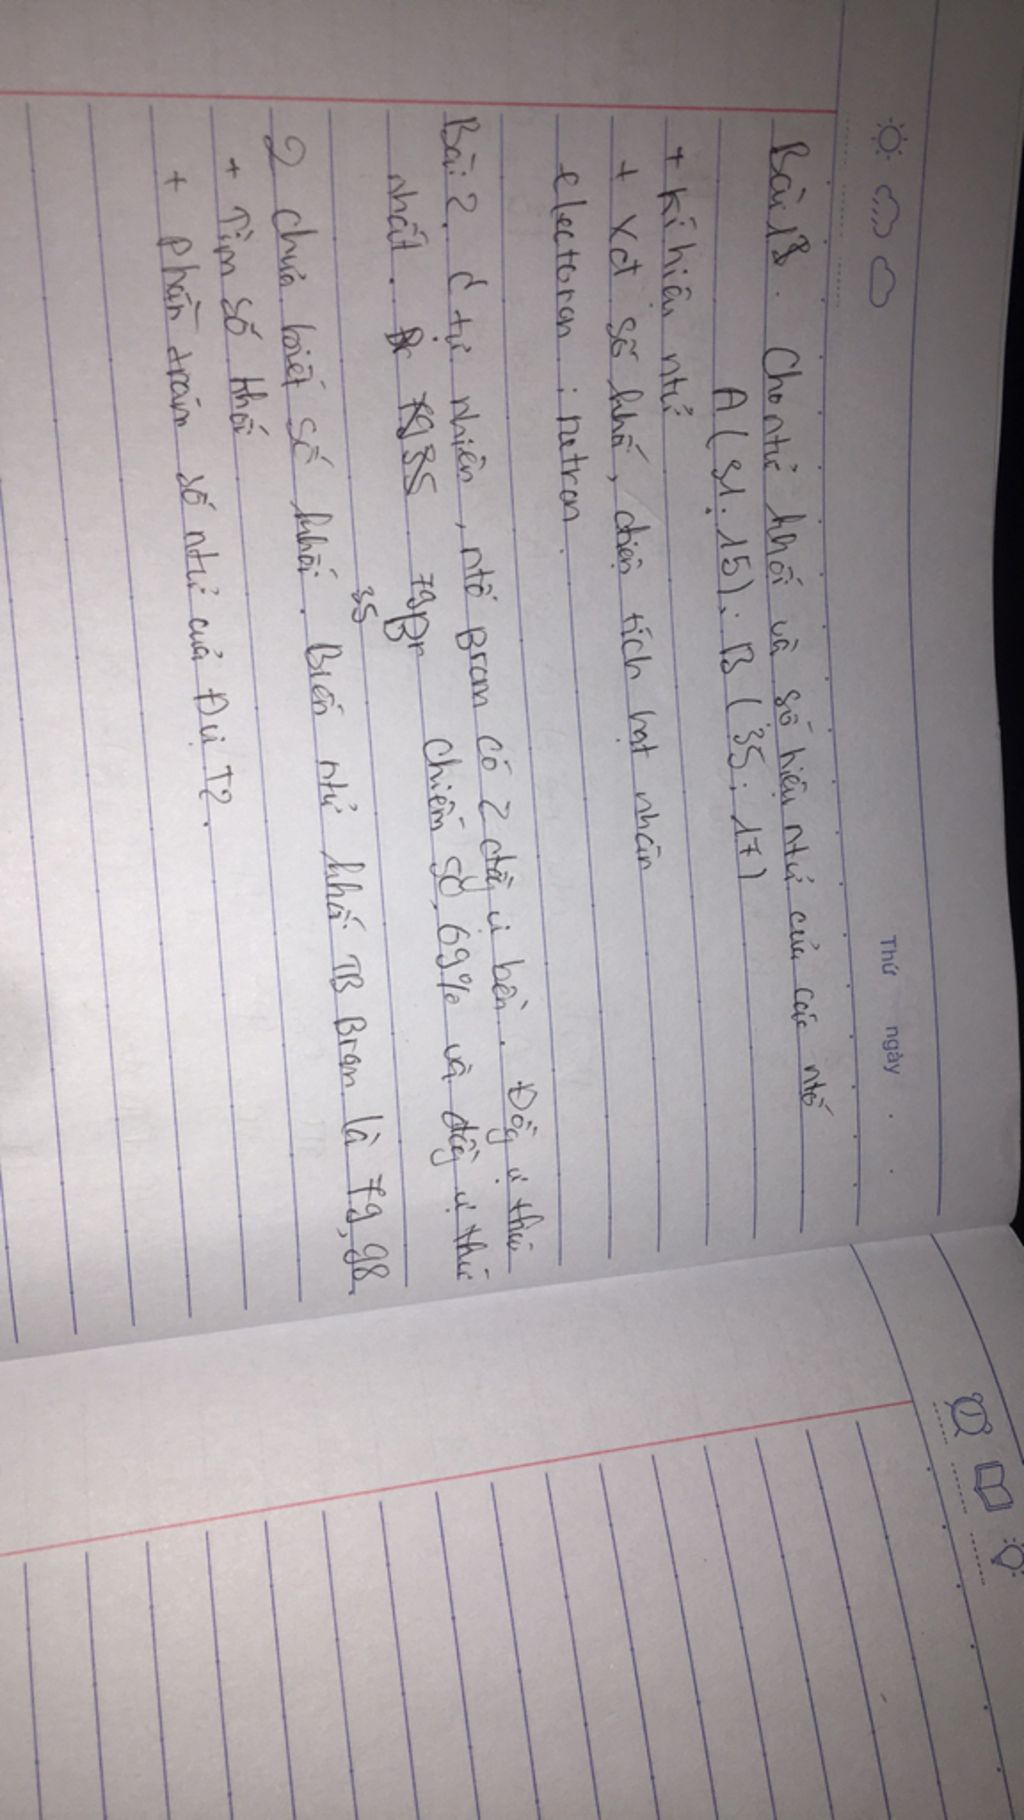 Thứ ngày
Bài 18. Cho ntử khối và số hiệu ntử của các ntố
A (31; 15); B (35; 17)
+ kí hiệu ntử
+ Xđ số khối, điện tích hạt nhân
electoron; netron.
Bài 2. Ở tự nhiên, ntố Brom có 2 đồg vị bền. Đồg vị thứ
nhất. 7935 79 35 Br chiếm 50,69% và đồg vị thứ
2 chưa biết số khối. Biến ntử khối TB Brom là 79,98.
+ Tìm số khối
+ phần trăm số ntử của Đvị T2.